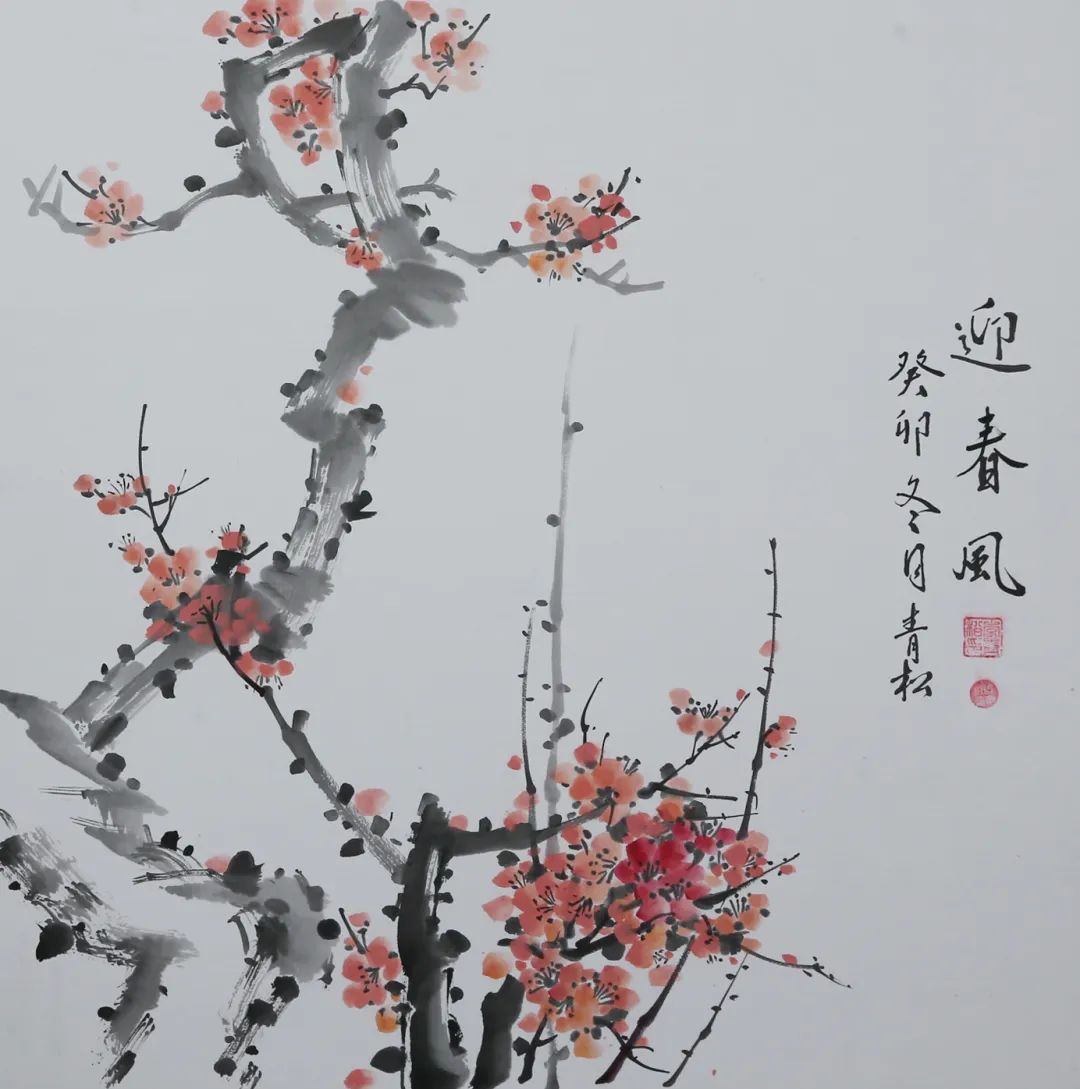 迎春風
癸卯冬月青松